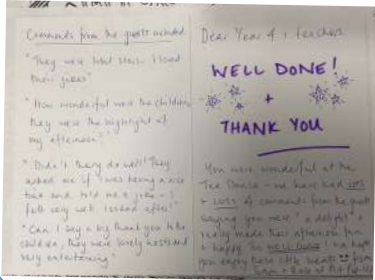 Comments from the guests included
"They were total stars. I loved
their jokes"
"How wonderful were the children
they were the highlight of
my afternoon"
"Didn't they do well! They
asked me if I was having a nice
time and told me a joke -
"Can I say a big thank you to the
children, they were lovely hosts and
very entertaining"
Dear Year 4 + teachers
WELL DONE!
+
THANK YOU
You were wonderful at the
Tea Dance - we have had LOTS
+ LOTS of comments from the guests
saying you were "a delight" +
really made their afternoon fun
+ happy. So WELL DONE! We hope
you enjoy these little treats from